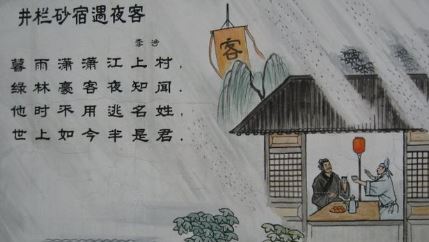 井栏砂宿遇夜客
李涉
暮雨潇潇江上村，
绿林豪客夜知闻．
他时不用逃名姓，
世上如今半是君．
客